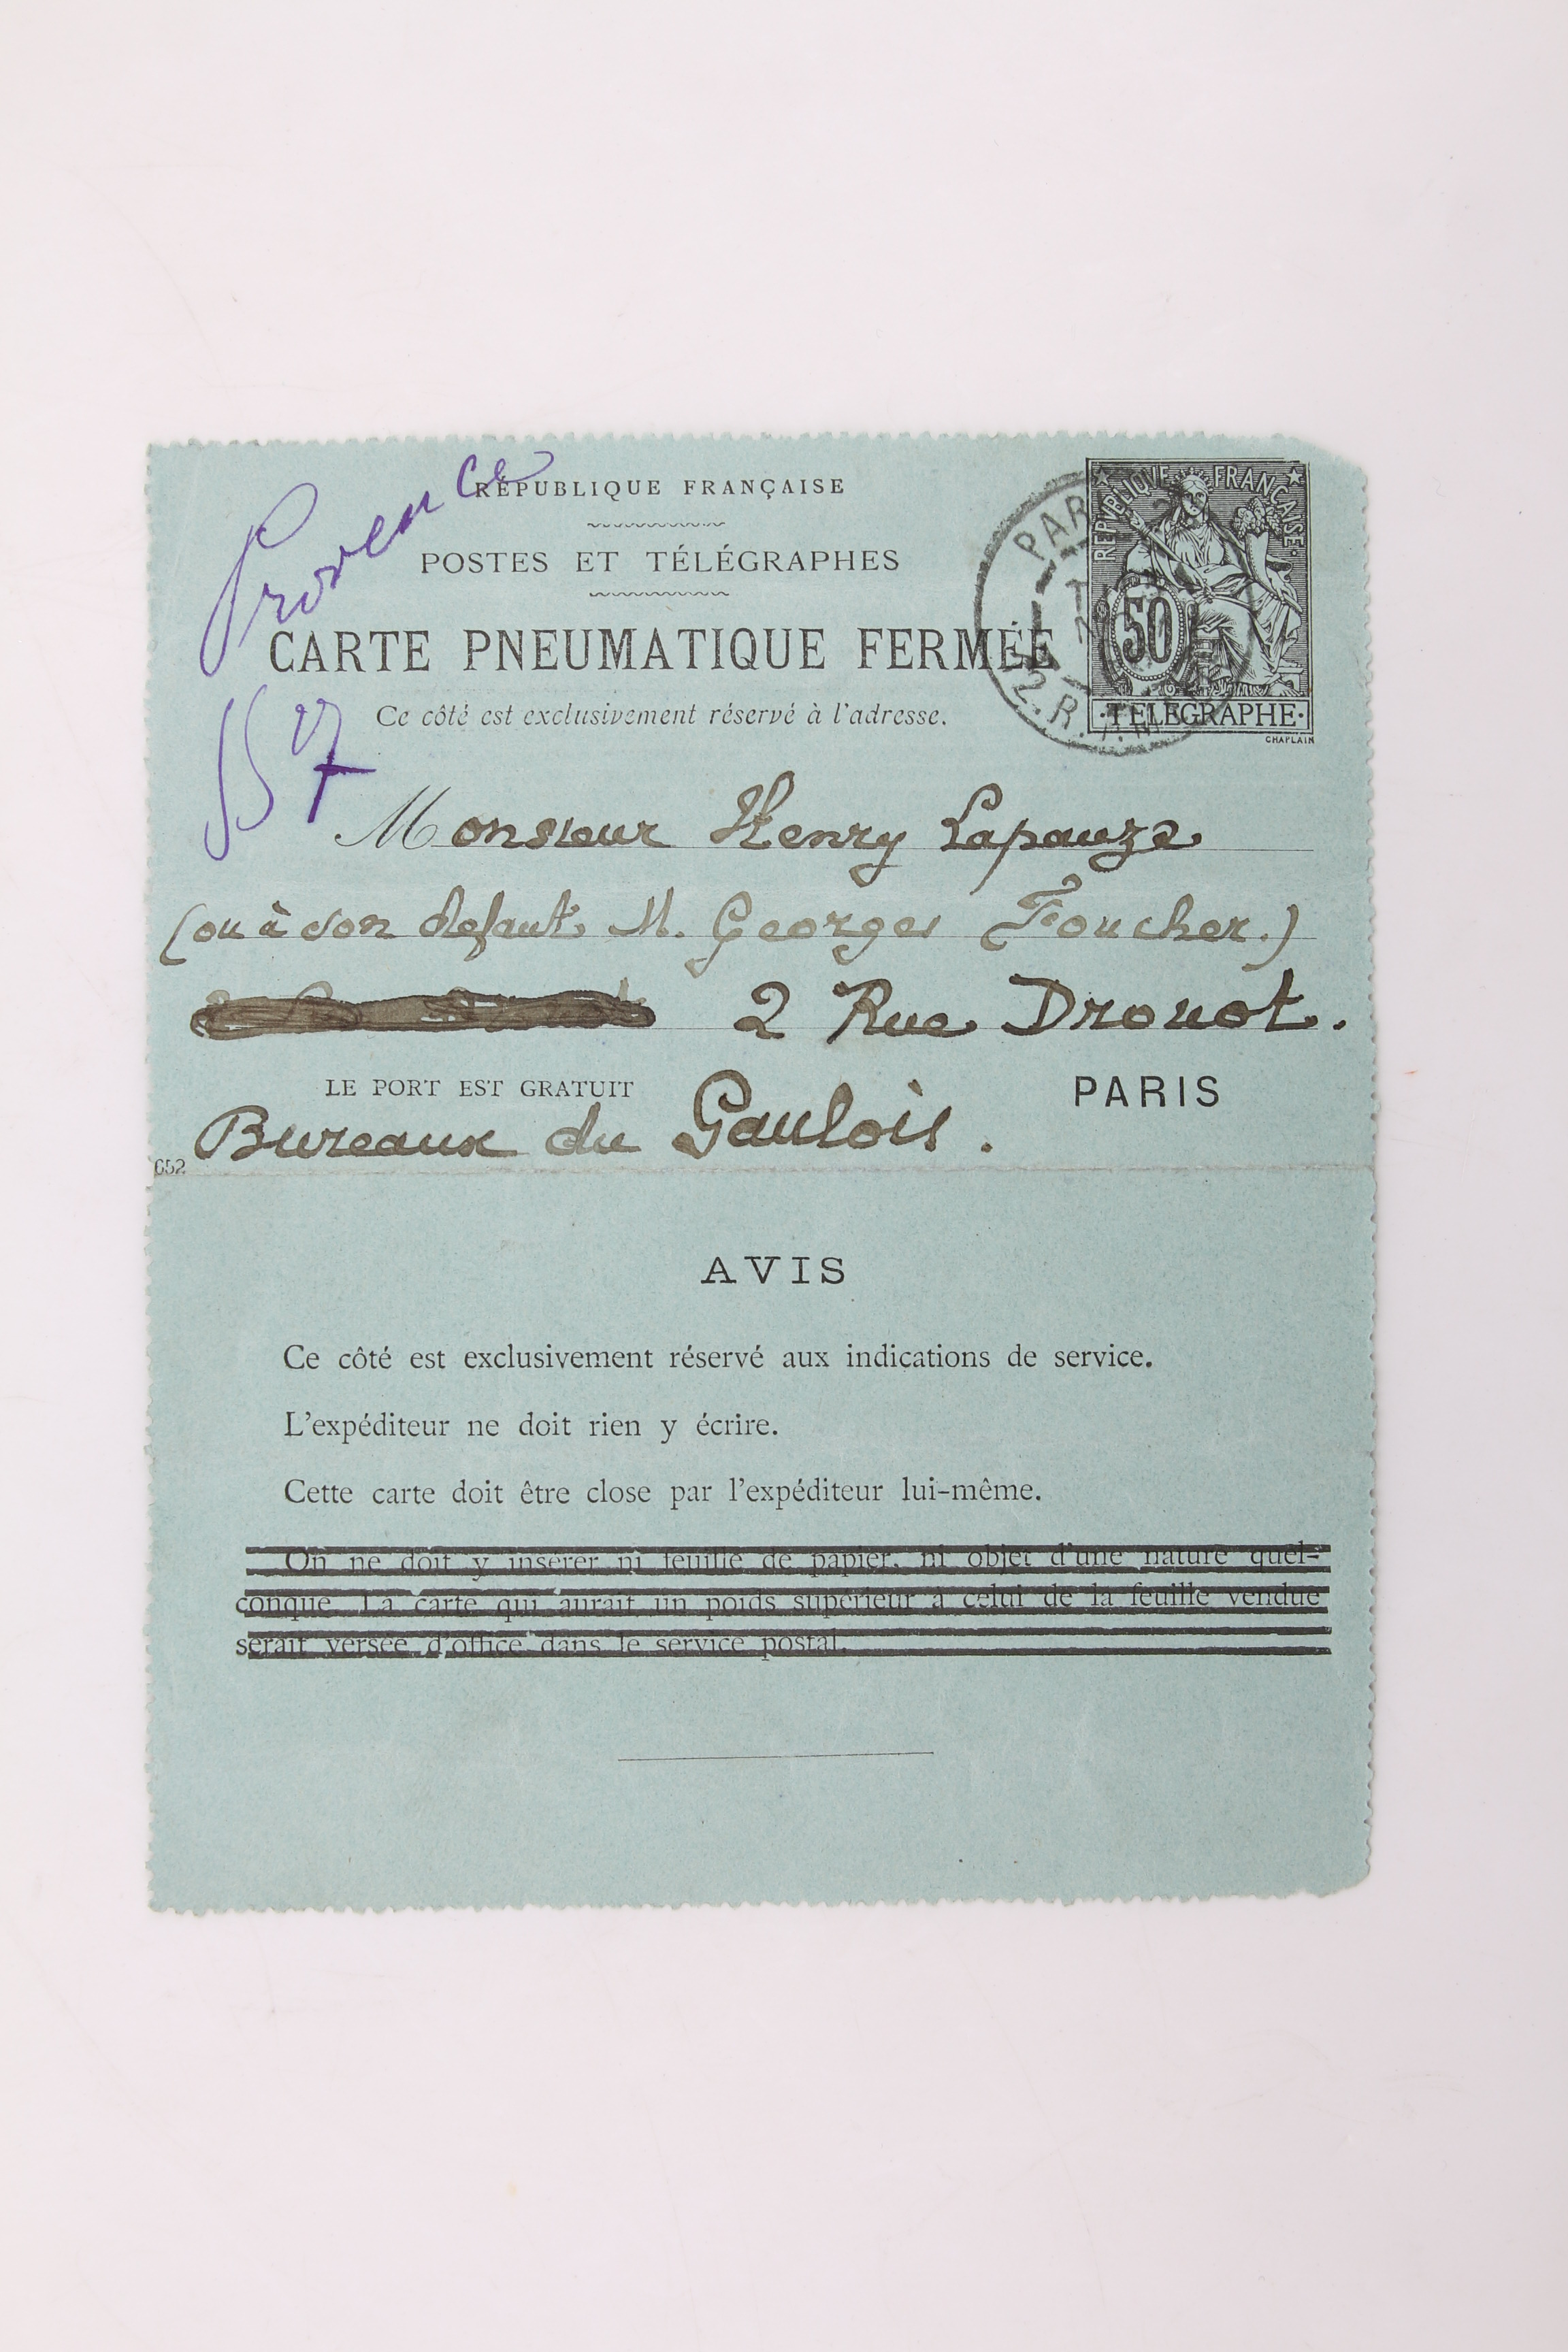 Provence
RÉPUBLIQUE FRANÇAISE
POSTES ET TÉLÉGRAPHES
CARTE PNEUMATIQUE FERMÉE
Ce côté est exclusivement réservé à l'adresse.
REPVBLIQVE FRANÇAISE
50
·TÉLÉGRAPHE·
CHAPLAIN
PARIS
Monsieur Henry Lapauze
(ou à son défaut M. Georges Foucher.)
2 Rue Drouot.
LE PORT EST GRATUIT
PARIS
Bureaux du Gaulois.
652
AVIS
Ce côté est exclusivement réservé aux indications de service.
L'expéditeur ne doit rien y écrire.
Cette carte doit être close par l'expéditeur lui-même.
On ne doit y insérer ni feuille de papier, ni objet d'une nature quel-
conque. La carte qui aurait un poids supérieur à celui de la feuille vendue
serait versée d'office dans le service postal.